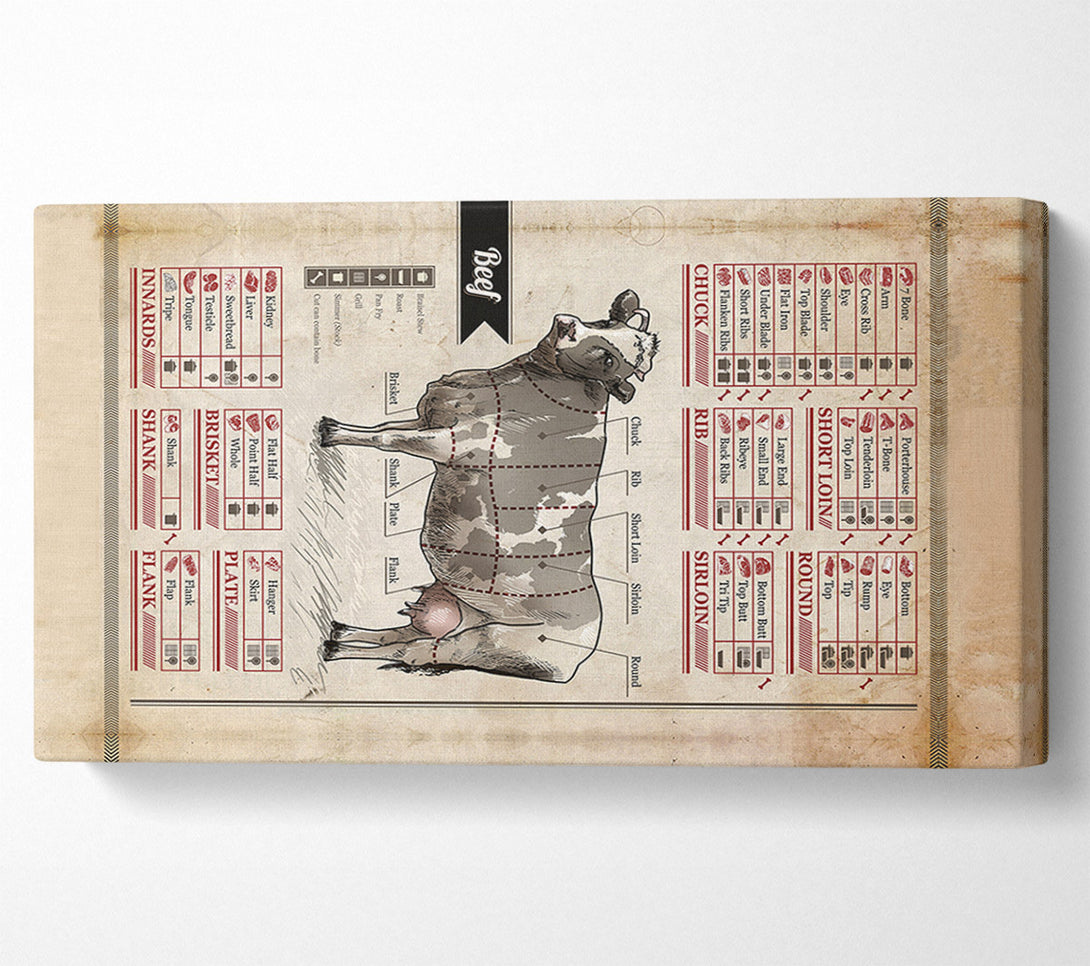 7 Bone
Arm
Cross Rib
Eye
Shoulder
Top Blade
Flat Iron
Under Blade
Short Ribs
Flanken Ribs
CHUCK
Porterhouse
T-Bone
Tenderloin
Top Loin
SHORT LOIN
Large End
Small End
Ribeye
Back Ribs
RIB
Bottom
Eye
Rump
Tip
Top
ROUND
Bottom Butt
Top Butt
Tri Tip
SIRLOIN
Chuck
Rib
Short Loin
Sirloin
Round
Beef
Brisket
Shank
Plate
Flank
Stew
Roast
Pan Fry
Grill
Simmer (Stock)
Cut can contain bone
Kidney
Liver
Sweetbread
Testicle
Tongue
Tripe
INNARDS
Flat Half
Point Half
Whole
BRISKET
Shank
SHANK
Hanger
Skirt
PLATE
Flank
Flap
FLANK